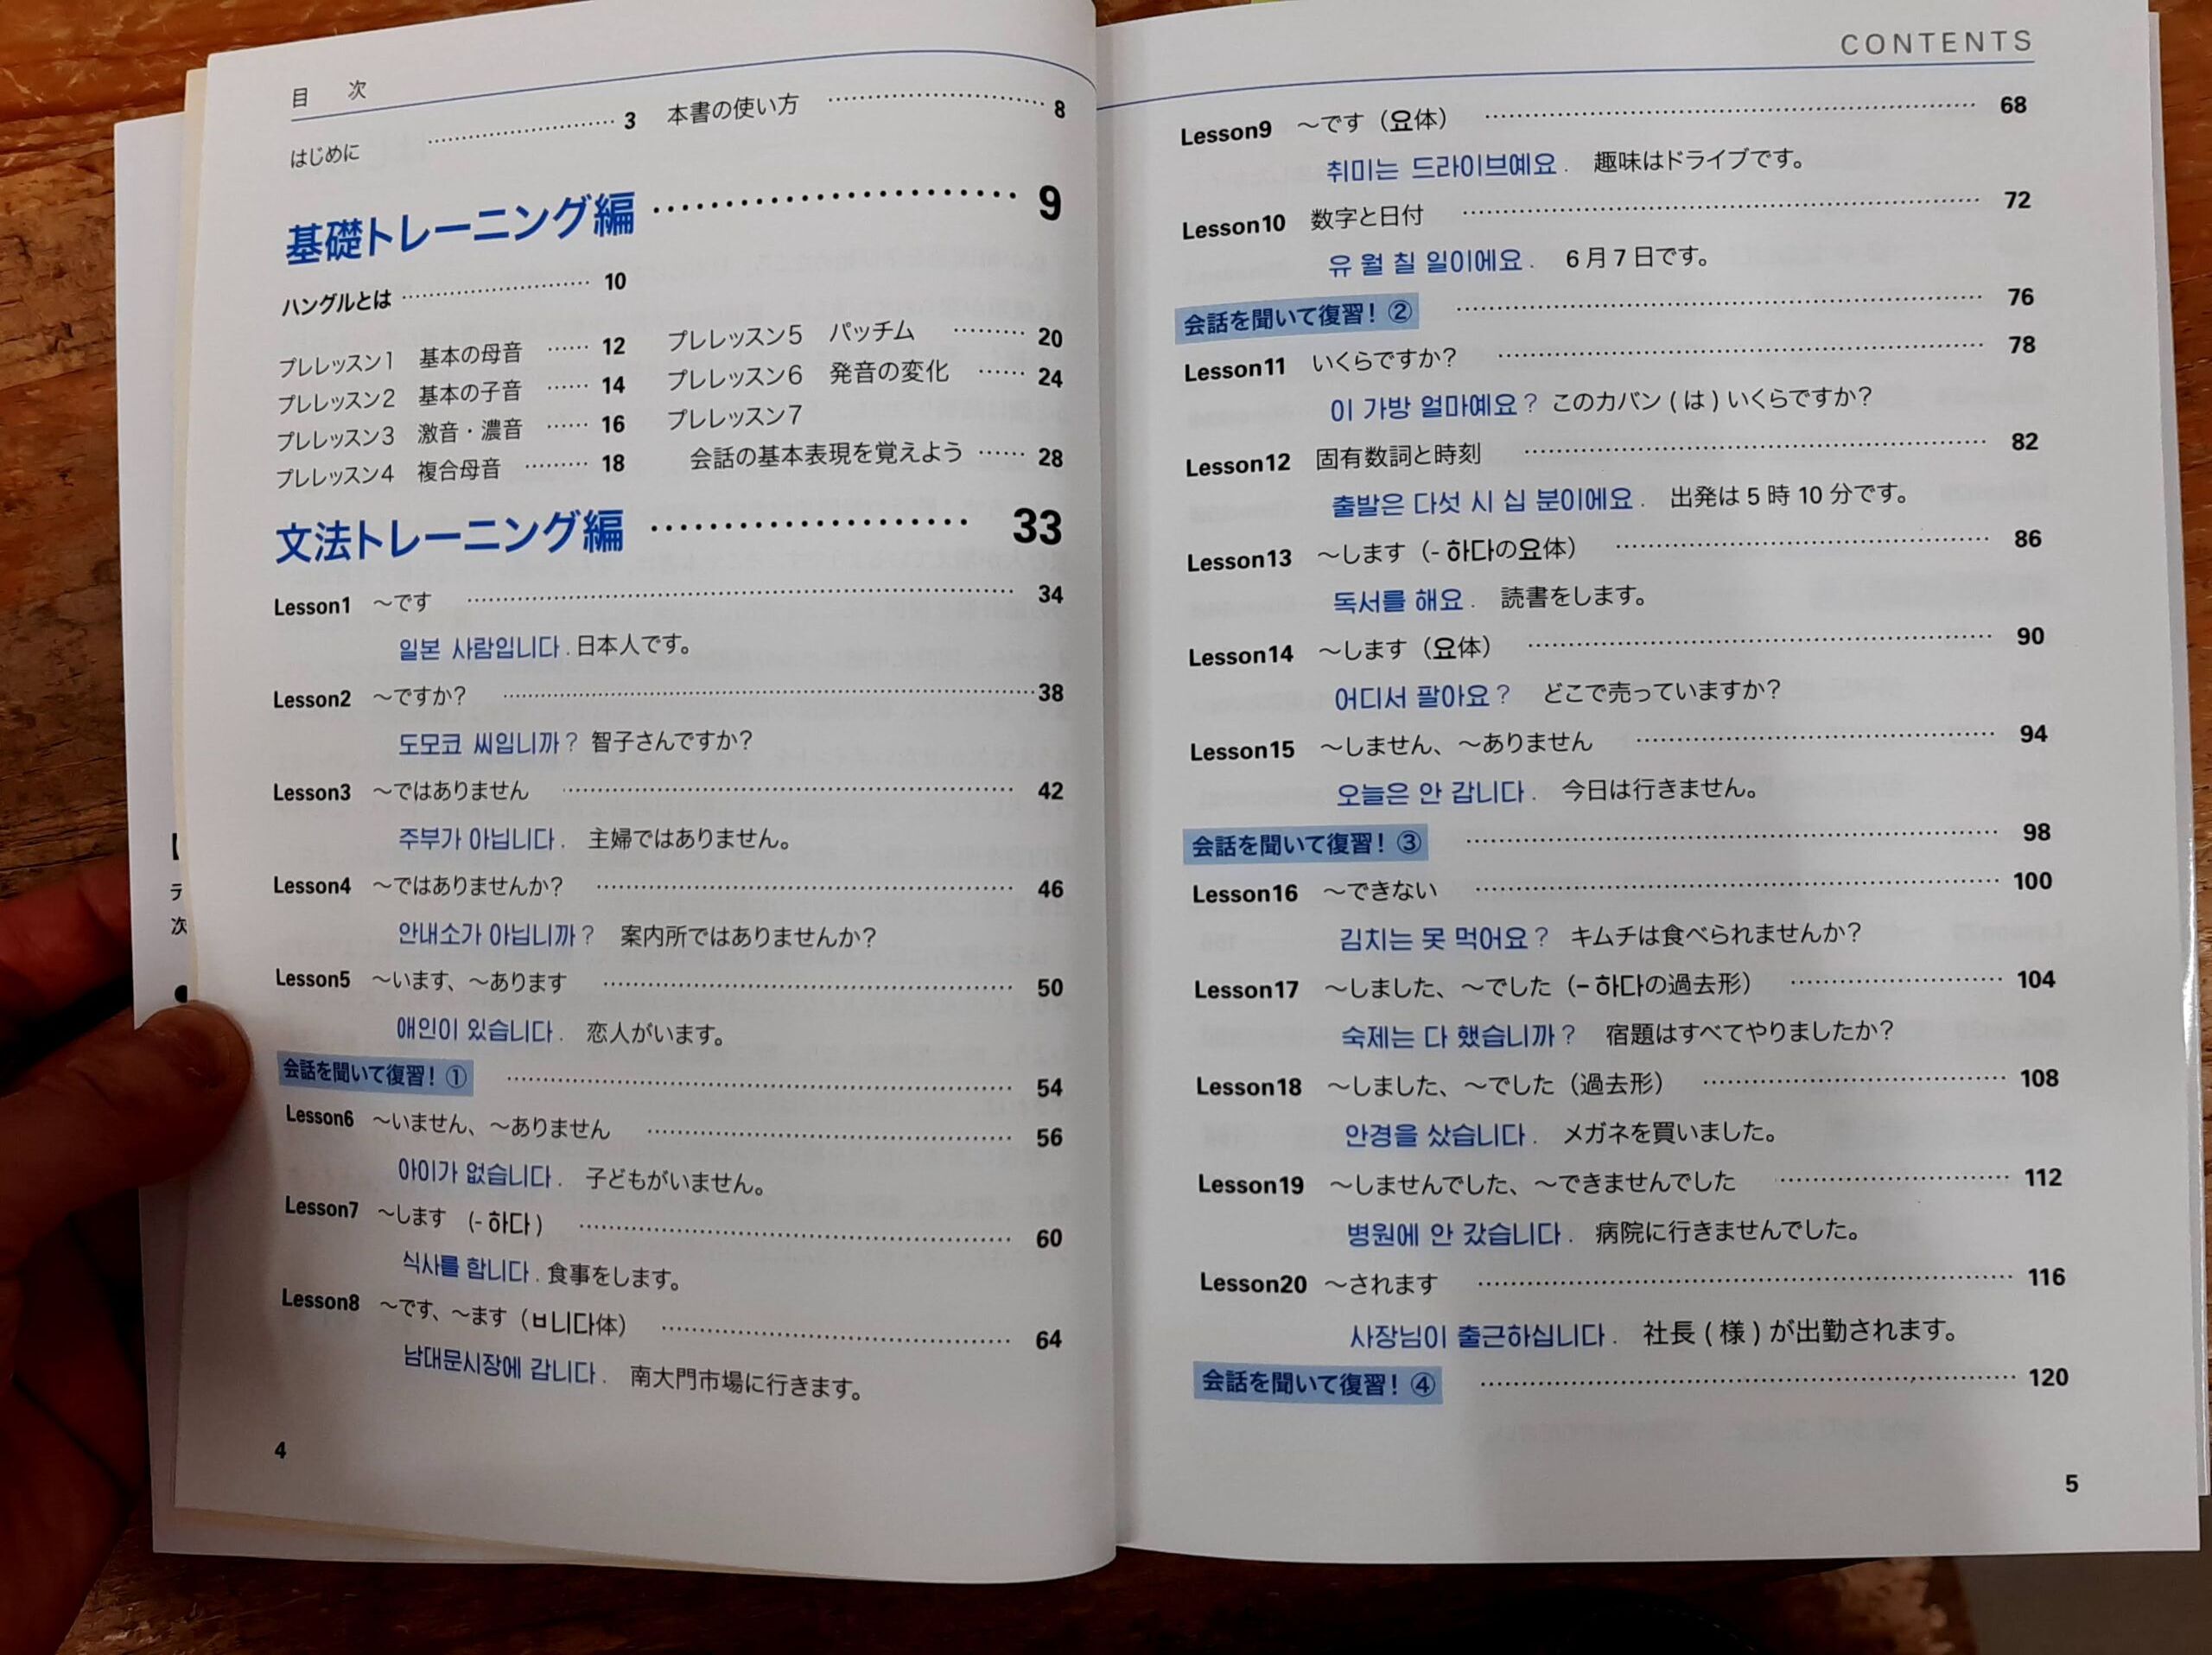 目 次
はじめに ………………… 3 本書の使い方 ………………… 8
基礎トレーニング編 ………………… 9
ハングルとは ………………… 10
プレレッスン1 基本の母音 …… 12
プレレッスン2 基本の子音 …… 14
プレレッスン3 激音・濃音 …… 16
プレレッスン4 複合母音 ……… 18
プレレッスン5 パッチム ……… 20
プレレッスン6 発音の変化 …… 24
プレレッスン7
会話の基本表現を覚えよう …… 28
文法トレーニング編 ………………… 33
Lesson1 〜です ………………… 34
일본 사람입니다. 日本人です。
Lesson2 〜ですか? ………………… 38
도모코 씨입니까? 智子さんですか?
Lesson3 〜ではありません ………………… 42
주부가 아닙니다. 主婦ではありません。
Lesson4 〜ではありませんか? ………………… 46
안내소가 아닙니까? 案内所ではありませんか?
Lesson5 〜います、〜あります ………………… 50
애인이 있습니다. 恋人がいます。
会話を聞いて復習! ① ………………… 54
Lesson6 〜いません、〜ありません ………………… 56
아이가 없습니다. 子どもがいません。
Lesson7 〜します (-하다) ………………… 60
식사를 합니다. 食事をします。
Lesson8 〜です、〜ます(ㅂ니다体) ………………… 64
남대문시장에 갑니다. 南大門市場に行きます。
4
CONTENTS
Lesson9 〜です(요体) ………………… 68
취미는 드라이브예요. 趣味はドライブです。
Lesson10 数字と日付 ………………… 72
유 월 칠 일이에요. 6月7日です。
会話を聞いて復習! ② ………………… 76
Lesson11 いくらですか? ………………… 78
이 가방 얼마예요? このカバン(は)いくらですか?
Lesson12 固有数詞と時刻 ………………… 82
출발은 다섯 시 십 분이에요. 出発は5時10分です。
Lesson13 〜します(-하다の요体) ………………… 86
독서를 해요. 読書をします。
Lesson14 〜します(요体) ………………… 90
어디서 팔아요? どこで売っていますか?
Lesson15 〜しません、〜ありません ………………… 94
오늘은 안 갑니다. 今日は行きません。
会話を聞いて復習! ③ ………………… 98
Lesson16 〜できない ………………… 100
김치는 못 먹어요? キムチは食べられませんか?
Lesson17 〜しました、〜でした(-하다の過去形) ………………… 104
숙제는 다 했습니까? 宿題はすべてやりましたか?
Lesson18 〜しました、〜でした(過去形) ………………… 108
안경을 샀습니다. メガネを買いました。
Lesson19 〜しませんでした、〜できませんでした ………………… 112
병원에 안 갔습니다. 病院に行きませんでした。
Lesson20 〜されます ………………… 116
사장님이 출근하십니다. 社長(様)が出勤されます。
会話を聞いて復習! ④ ………………… 120
5